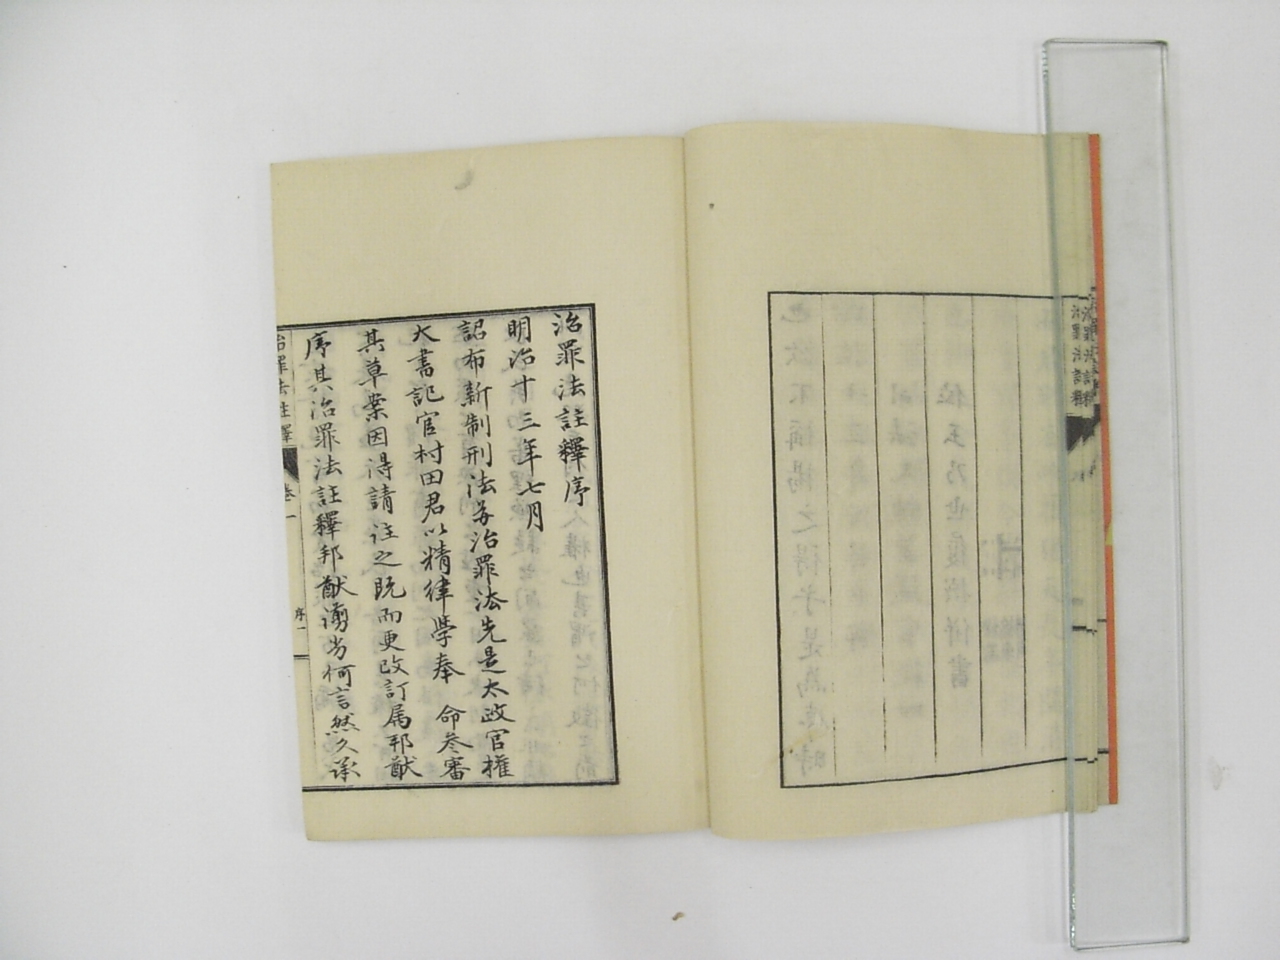 治罪法註釋
治罪法註釋序
明治十三年七月
詔布新制刑法與治罪法先是太政官權
大書記官村田君以精律學奉 命参審
其草案因得請註之既而更改訂属邦猷
序其治罪法註釋邦猷謭劣何言然久承
治罪法註釋
卷一
序一